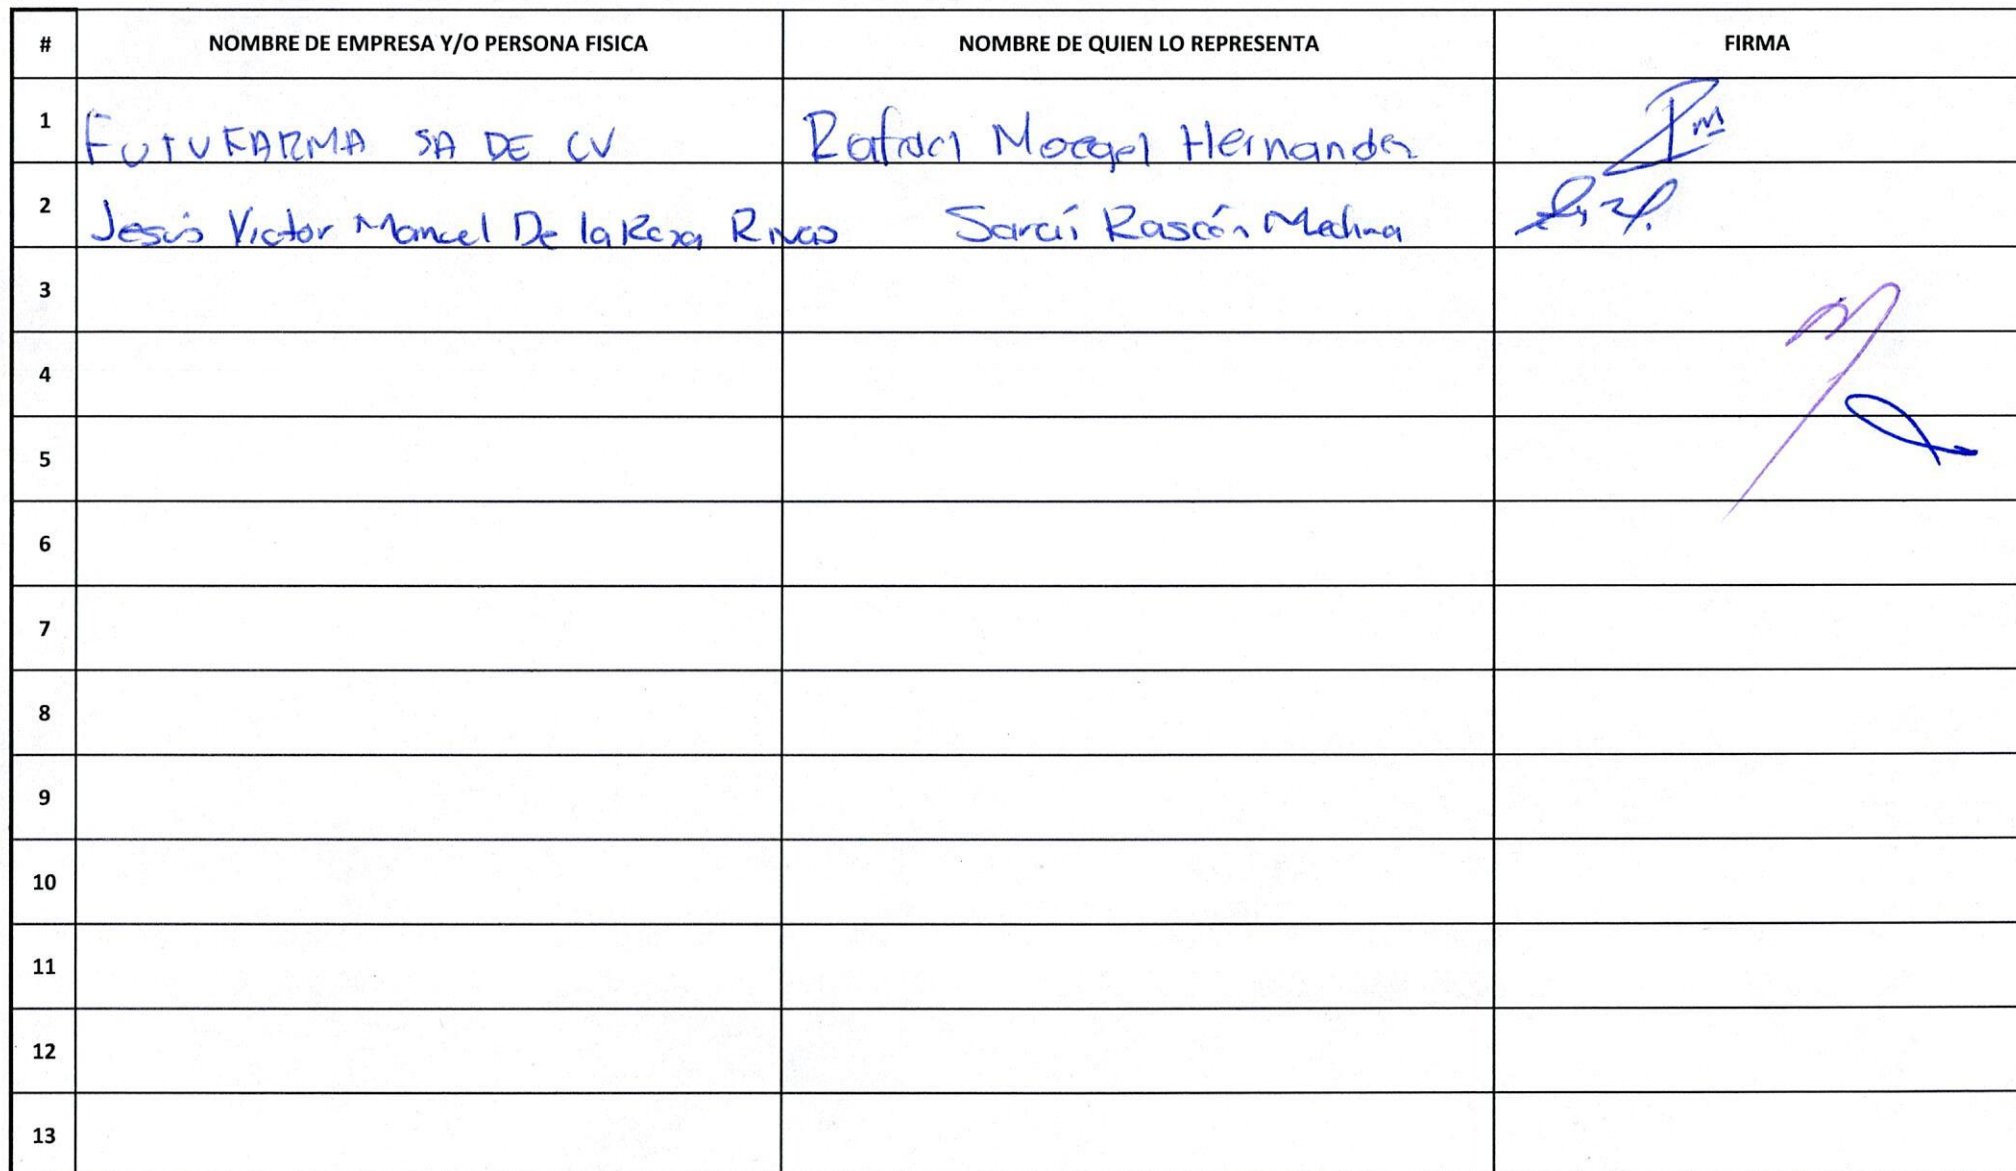 # NOMBRE DE EMPRESA Y/O PERSONA FISICA NOMBRE DE QUIEN LO REPRESENTA FIRMA
1 FUTUFARMA SA DE CV Rafael Hernandez
2 Jesús Victor Manuel De la Rosa Rivas Saraí Rascón Medina
3
4
5
6
7
8
9
10
11
12
13